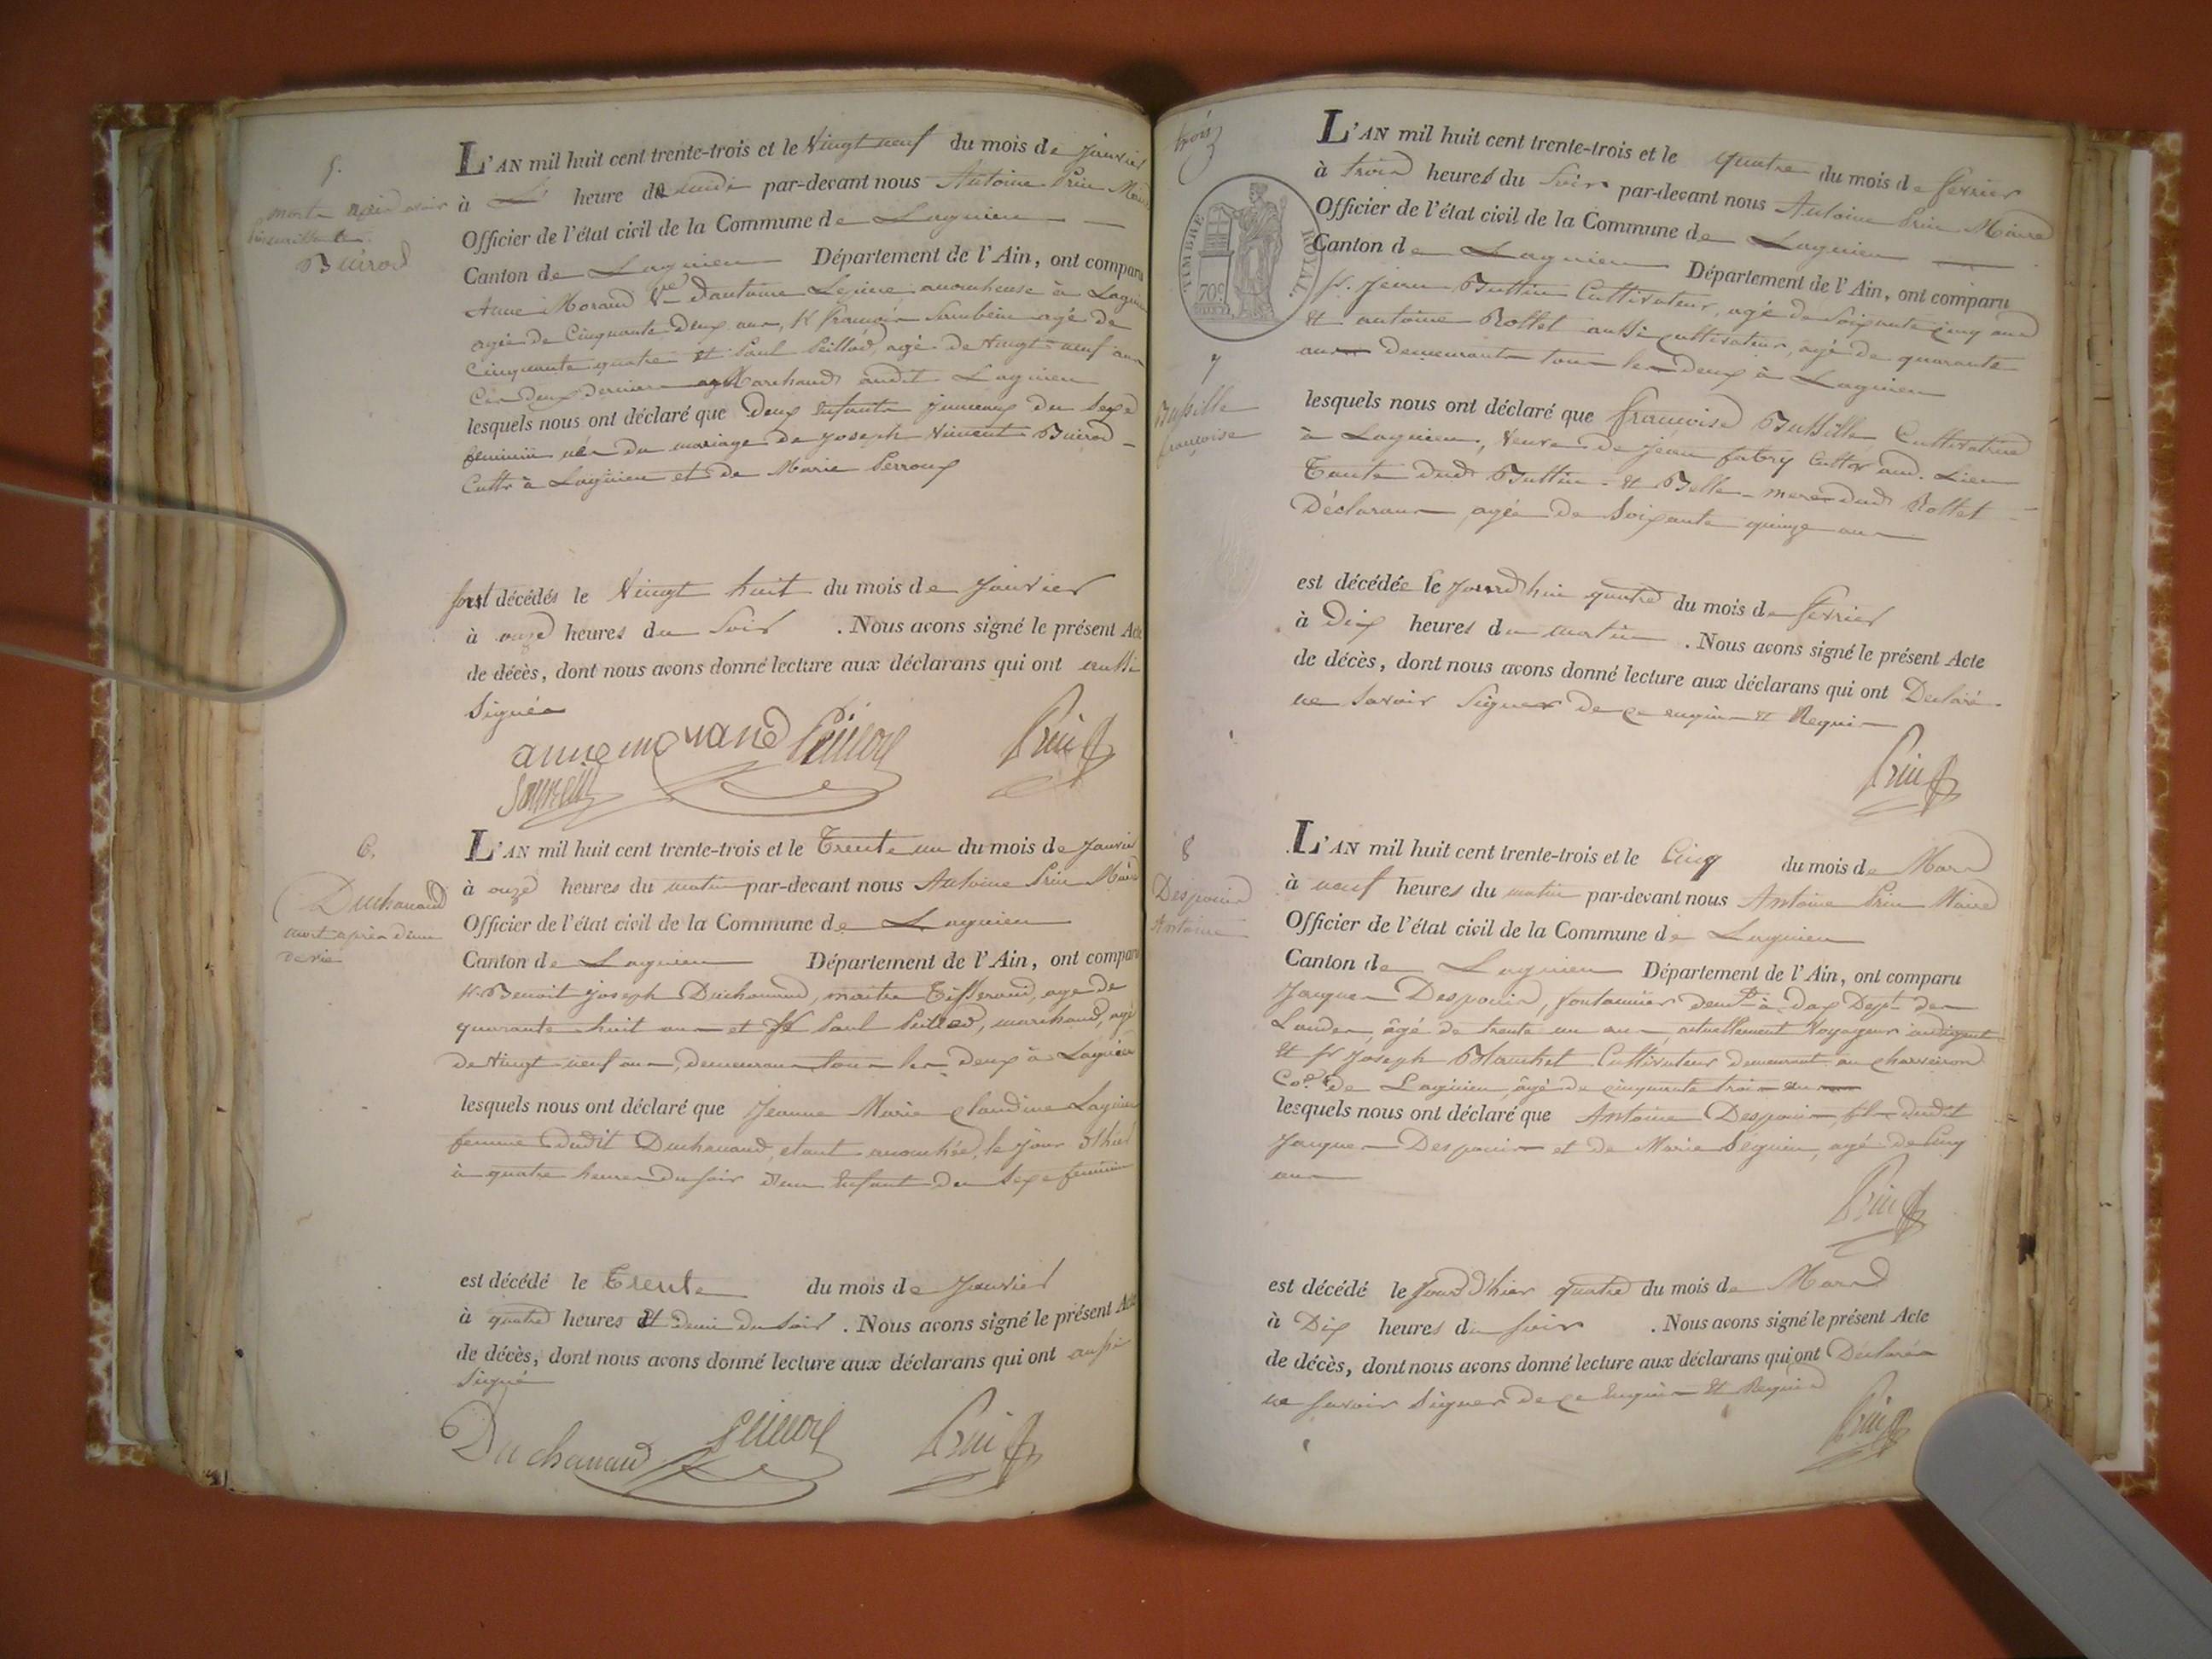 5.
mort
Buirod
L'AN mil huit cent trente-trois et le Vingt neuf du mois de Janvier
à L' heure de midi par-devant nous Antoine Prin Maire
Officier de l'état civil de la Commune de Lagnieu
Canton de Lagnieu Département de l'Ain, ont comparu
Anne Morand Ve d'antoine Lepine accoucheuse à Lagnieu
agée de Cinquante deux ans, Sr françois Sambein agé de
Cinquante quatre et Paul Peillod, agé de Vingt neuf ans
Ces deux derniers Marchands audit Lagnieu
lesquels nous ont déclaré que Deux Enfants jumeaux du Sexe
feminin nés du mariage de Joseph Vincent Buirod
Cultr à Lagnieu et de Marie Perroux
sont décédés le Vingt huit du mois de Janvier
à onze heures du Soir . Nous avons signé le présent Acte
de décès, dont nous avons donné lecture aux déclarans qui ont aussi
Signés
anne morand Peillod Prin
Sambein
6.
Duchanaud
mort après
de vie
L'AN mil huit cent trente-trois et le Trente un du mois de Janvier
à onze heures du matin par-devant nous Antoine Prin Maire
Officier de l'état civil de la Commune de Lagnieu
Canton de Lagnieu Département de l'Ain, ont comparu
Sr Benoit Joseph Duchanaud, maitre Tisserand, agé de
quarante huit ans et Sr Paul Peillod, marchand, agé
de Vingt neuf ans, demeurans tous les deux à Lagnieu
lesquels nous ont déclaré que Jeanne Marie Claudine
femme dudit Duchanaud, étant accouchée, le jour d'hier
à quatre heures du soir d'un Enfant du Sexe feminin
est décédé le Trente du mois de Janvier
à quatre heures et demi du Soir . Nous avons signé le présent Acte
de décès, dont nous avons donné lecture aux déclarans qui ont aussi
Signé
Duchanaud Peillod Prin
trois
TIMBRE ROYAL.
70c
7
Bussille
françoise
L'AN mil huit cent trente-trois et le quatre du mois de fevrier
à trois heures du Soir par-devant nous Antoine Prin Maire
Officier de l'état civil de la Commune de Lagnieu
Canton de Lagnieu Département de l'Ain, ont comparu
Sr. Jean Buttin Cultivateur, agé de Soixante cinq ans
et antoine Rollet aussi cultivateur, agé de quarante
ans Demeurants tous les deux à Lagnieu
lesquels nous ont déclaré que françoise Bussille Cultivatrice
à Lagnieu, Veuve de Jean fabry Cultr aud. Lieu
Tante dud. Buttin et Belle-mere dud. Rollet
Déclarans, agée de Soixante quinze ans
est décédée le Jourd'hui quatre du mois de fevrier
à Dix heures du matin . Nous avons signé le présent Acte
de décès, dont nous avons donné lecture aux déclarans qui ont Déclaré
ne Savoir Signer de ce enquis et Requis
Prin
8
Despouis
Antoine
L'AN mil huit cent trente-trois et le Cinq du mois de Mars
à neuf heures du matin par-devant nous Antoine Prin Maire
Officier de l'état civil de la Commune de Lagnieu
Canton de Lagnieu Département de l'Ain, ont comparu
Jacques Despouis, fontainier demt à Dax Dept des
Landes, âgé de trente un ans, actuellement Voyageur indigent
et Sr Joseph Blanchet Cultivateur demeurant au
Coe de Lagnieu, âgé de cinquante trois ans
lesquels nous ont déclaré que Antoine Despouis, fils dudit
Jacques Despouis et de Marie Seguin, agé de Cinq
ans
Prin
est décédé le Jour d'hier quatre du mois de Mars
à Dix heures du soir . Nous avons signé le présent Acte
de décès, dont nous avons donné lecture aux déclarans qui ont Déclarés
ne savoir Signer de ce Enquis et Requis
Prin